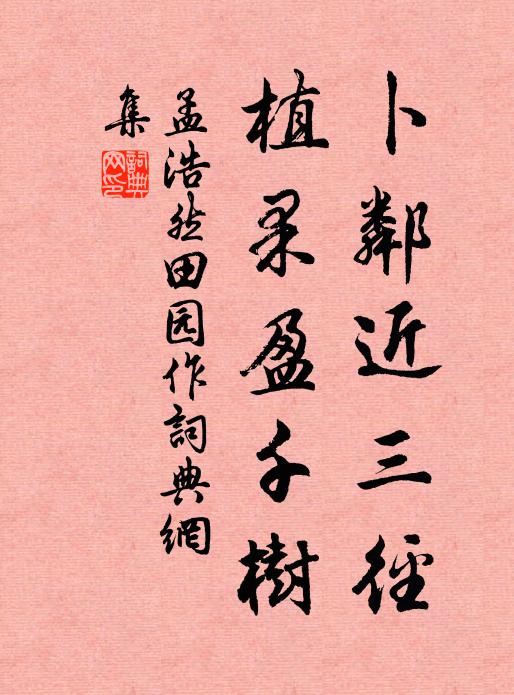 卜鄰近三徑
植果盈千樹
孟浩然田园作詞典網
集
詞典網印